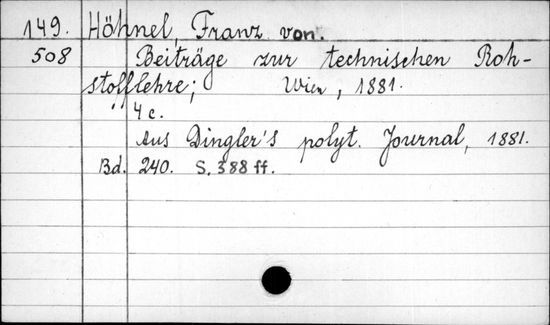 149. Höhnel, Franz von.
508 Beiträge zur technischen Roh-
stofflehre; Wien, 1881.
4 c.
Aus Dingler's polyt. Journal, 1881.
Bd. 240. S. 388 ff.